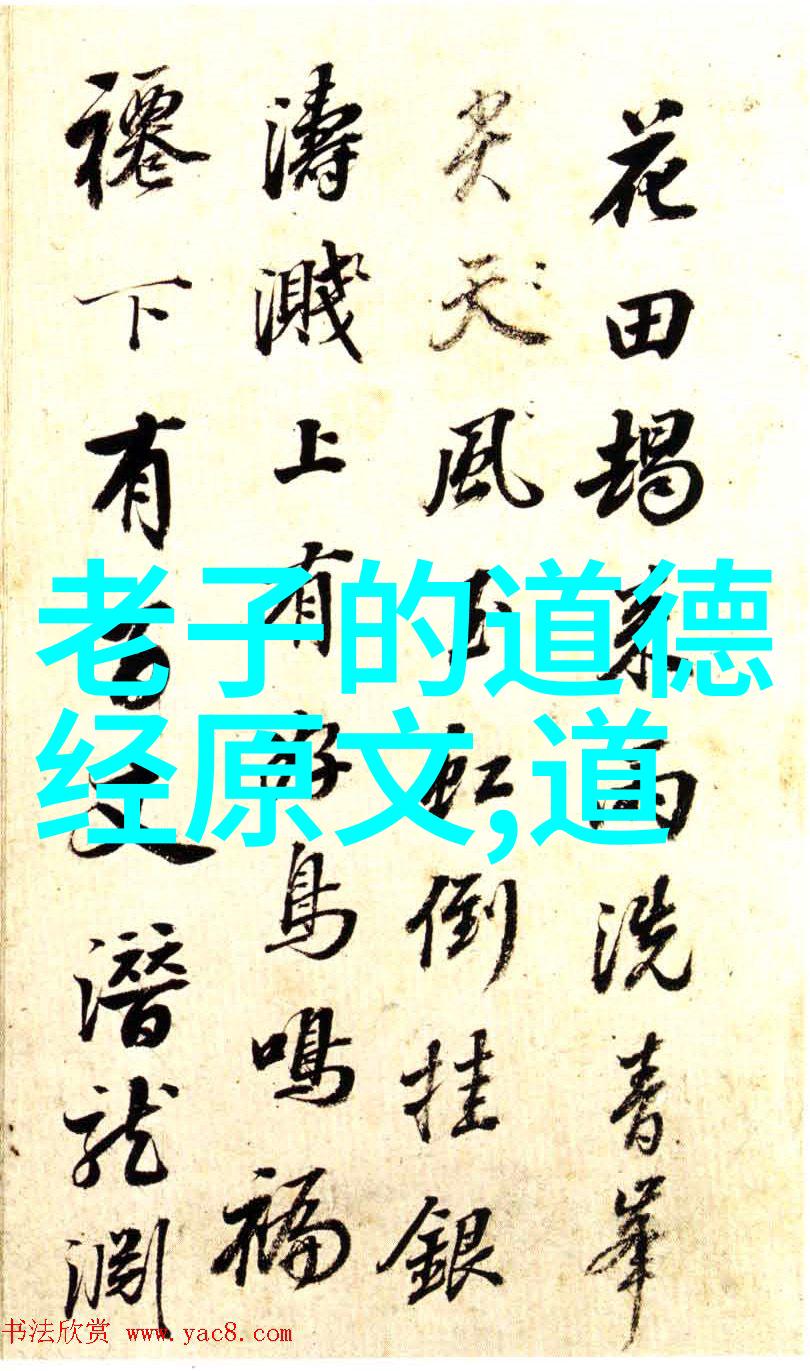 花田朅来雨洗青峯
天風玉虹倒挂銀
濤濺上有鳥鳴福
下有潛龍淵
老子的道德
经原文,道
书法欣赏 www.yac8.com